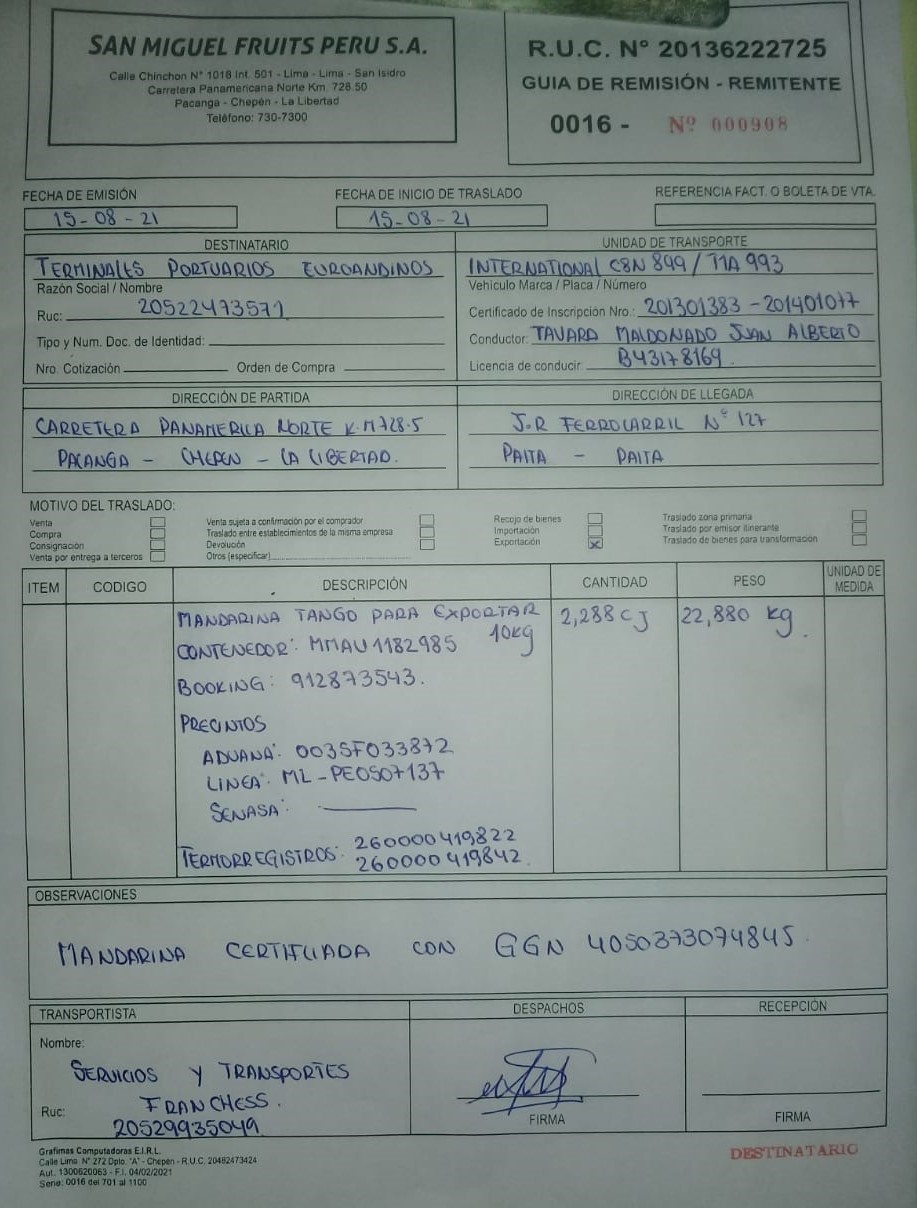 SAN MIGUEL FRUITS PERU S.A.
Calle Chinchon N° 1018 Int. 501 - Lima - Lima - San Isidro
Carretera Panamericana Norte Km. 728.50
Pacanga - Chepén - La Libertad
Teléfono: 730-7300
R.U.C. N° 20136222725
GUIA DE REMISIÓN - REMITENTE
0016 - Nº 000908
FECHA DE EMISIÓN
15-08-21
FECHA DE INICIO DE TRASLADO
15-08-21
REFERENCIA FACT. O BOLETA DE VTA.
DESTINATARIO
TERMINALES PORTUARIOS EUROANDINOS
Razón Social / Nombre
Ruc: 20522473571
Tipo y Num. Doc. de Identidad:
Nro. Cotización Orden de Compra
UNIDAD DE TRANSPORTE
INTERNATIONAL C8N 899 / T1A 993
Vehículo Marca / Placa / Número
Certificado de Inscripción Nro.: 201301383 - 201401077
Conductor: TAVARA MALDONADO JUAN ALBERTO
Licencia de conducir: B43178169
DIRECCIÓN DE PARTIDA
CARRETERA PANAMERICA NORTE K.M 728.5
PACANGA - CHEPEN - LA LIBERTAD.
DIRECCIÓN DE LLEGADA
J.R FERROCARRIL N° 127
PAITA - PAITA
MOTIVO DEL TRASLADO:
Venta
Compra
Consignación
Venta por entrega a terceros
Venta sujeta a confirmación por el comprador
Traslado entre establecimientos de la misma empresa
Devolución
Otros (especificar)
Recojo de bienes
Importación
Exportación X
Traslado zona primaria
Traslado por emisor itinerante
Traslado de bienes para transformación
ITEM CODIGO DESCRIPCIÓN CANTIDAD PESO UNIDAD DE MEDIDA
MANDARINA TANGO PARA EXPORTAR 2,288 CJ 22,880 kg.
10kg
CONTENEDOR: MMAU1182985
BOOKING: 912873543.
PRECINTOS
ADUANA: 003SF033872
LINEA: ML-PE0507137
SENASA:
TERMORREGISTROS: 260000419822
260000419842.
OBSERVACIONES
MANDARINA CERTIFICADA CON GGN 4050373074845.
TRANSPORTISTA
Nombre:
SERVICIOS Y TRANSPORTES
FRANCHESS.
Ruc: 20529935049
DESPACHOS
FIRMA
RECEPCIÓN
FIRMA
Grafimas Computadoras E.I.R.L.
Calle Lima N° 272 Dpto. "A" - Chepen - R.U.C. 20482473424
Aut. 1300620063 - F.I. 04/02/2021
Serie: 0016 del 701 al 1100
DESTINATARIO